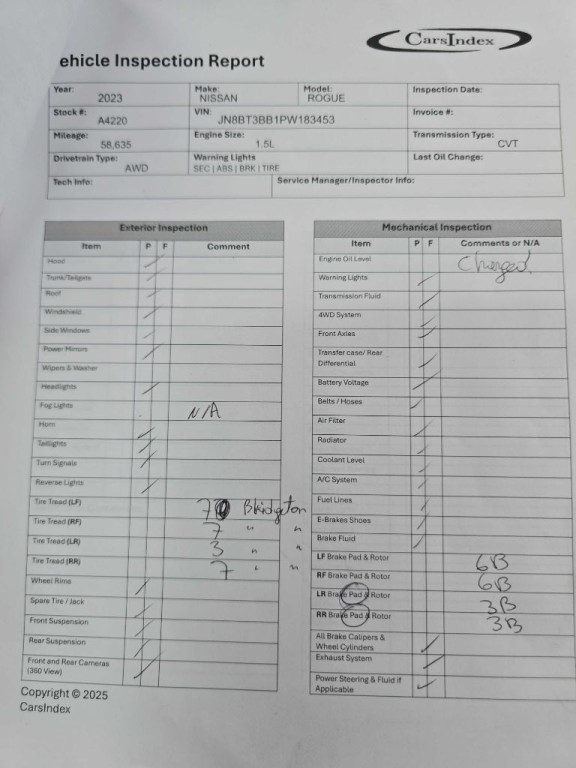 CarsIndex
ehicle Inspection Report
Year: 2023 Make: NISSAN Model: ROGUE Inspection Date:
Stock #: A4220 VIN: JN8BT3BB1PW183453 Invoice #:
Mileage: 58,635 Engine Size: 1.5L Transmission Type: CVT
Drivetrain Type: AWD Warning Lights SEC | ABS | BRK | TIRE Last Oil Change:
Tech Info: Service Manager/Inspector Info:
Exterior Inspection
Item P F Comment
Hood
Trunk/Tailgate
Roof
Windshield
Side Windows
Power Mirrors
Wipers & Washer
Headlights
Fog Lights N/A
Horn
Taillights
Turn Signals
Reverse Lights
Tire Tread (LF) 7
Tire Tread (RF) 7 " "
Tire Tread (LR) 3 " "
Tire Tread (RR) 7 " "
Wheel Rims
Spare Tire / Jack
Front Suspension
Rear Suspension
Front and Rear Cameras
(360 View)
Mechanical Inspection
Item P F Comments or N/A
Engine Oil Level
Warning Lights
Transmission Fluid
4WD System
Front Axles
Transfer case/ Rear
Differential
Battery Voltage
Belts / Hoses
Air Filter
Radiator
Coolant Level
A/C System
Fuel Lines
E-Brakes Shoes
Brake Fluid
LF Brake Pad & Rotor 6B
RF Brake Pad & Rotor 6B
LR Brake Pad & Rotor 3B
RR Brake Pad & Rotor 3B
All Brake Calipers &
Wheel Cylinders
Exhaust System
Power Steering & Fluid if
Applicable
Copyright © 2025
CarsIndex